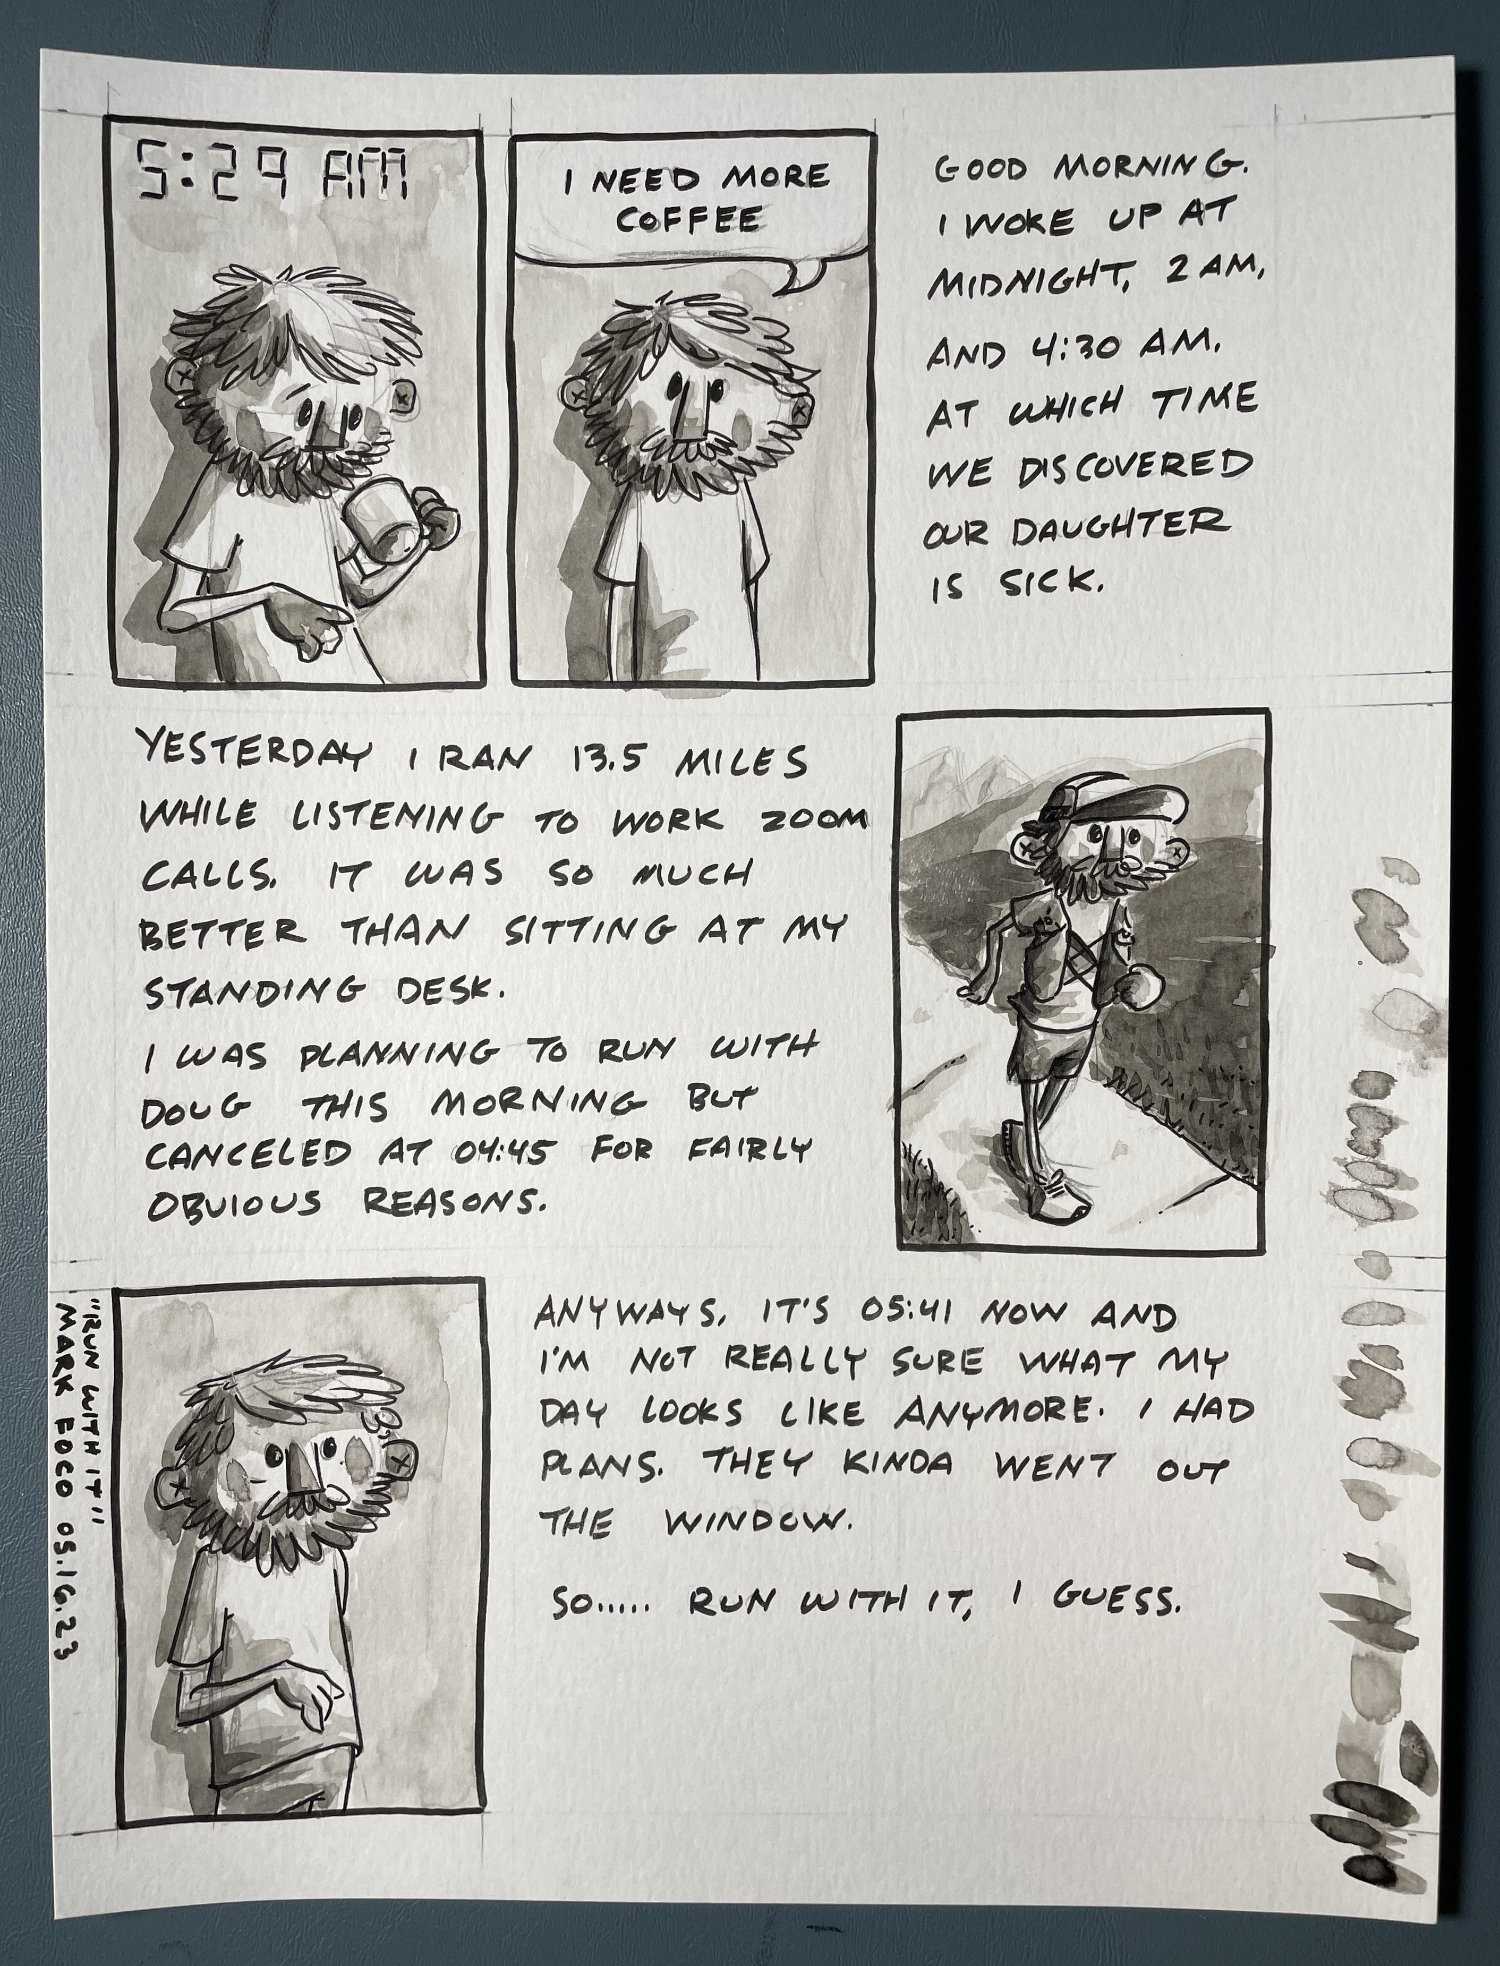 5:29 AM
I NEED MORE
COFFEE
GOOD MORNING.
I WOKE UP AT
MIDNIGHT, 2 AM,
AND 4:30 AM.
AT WHICH TIME
WE DISCOVERED
OUR DAUGHTER
IS SICK.
YESTERDAY I RAN 13.5 MILES
WHILE LISTENING TO WORK ZOOM
CALLS. IT WAS SO MUCH
BETTER THAN SITTING AT MY
STANDING DESK.
I WAS PLANNING TO RUN WITH
DOUG THIS MORNING BUT
CANCELED AT 04:45 FOR FAIRLY
OBVIOUS REASONS.
ANYWAYS, IT'S 05:41 NOW AND
I'M NOT REALLY SURE WHAT MY
DAY LOOKS LIKE ANYMORE. I HAD
PLANS. THEY KINDA WENT OUT
THE WINDOW.
SO..... RUN WITH IT, I GUESS.
"RUN WITH IT"
MARK FOCO 05.16.23